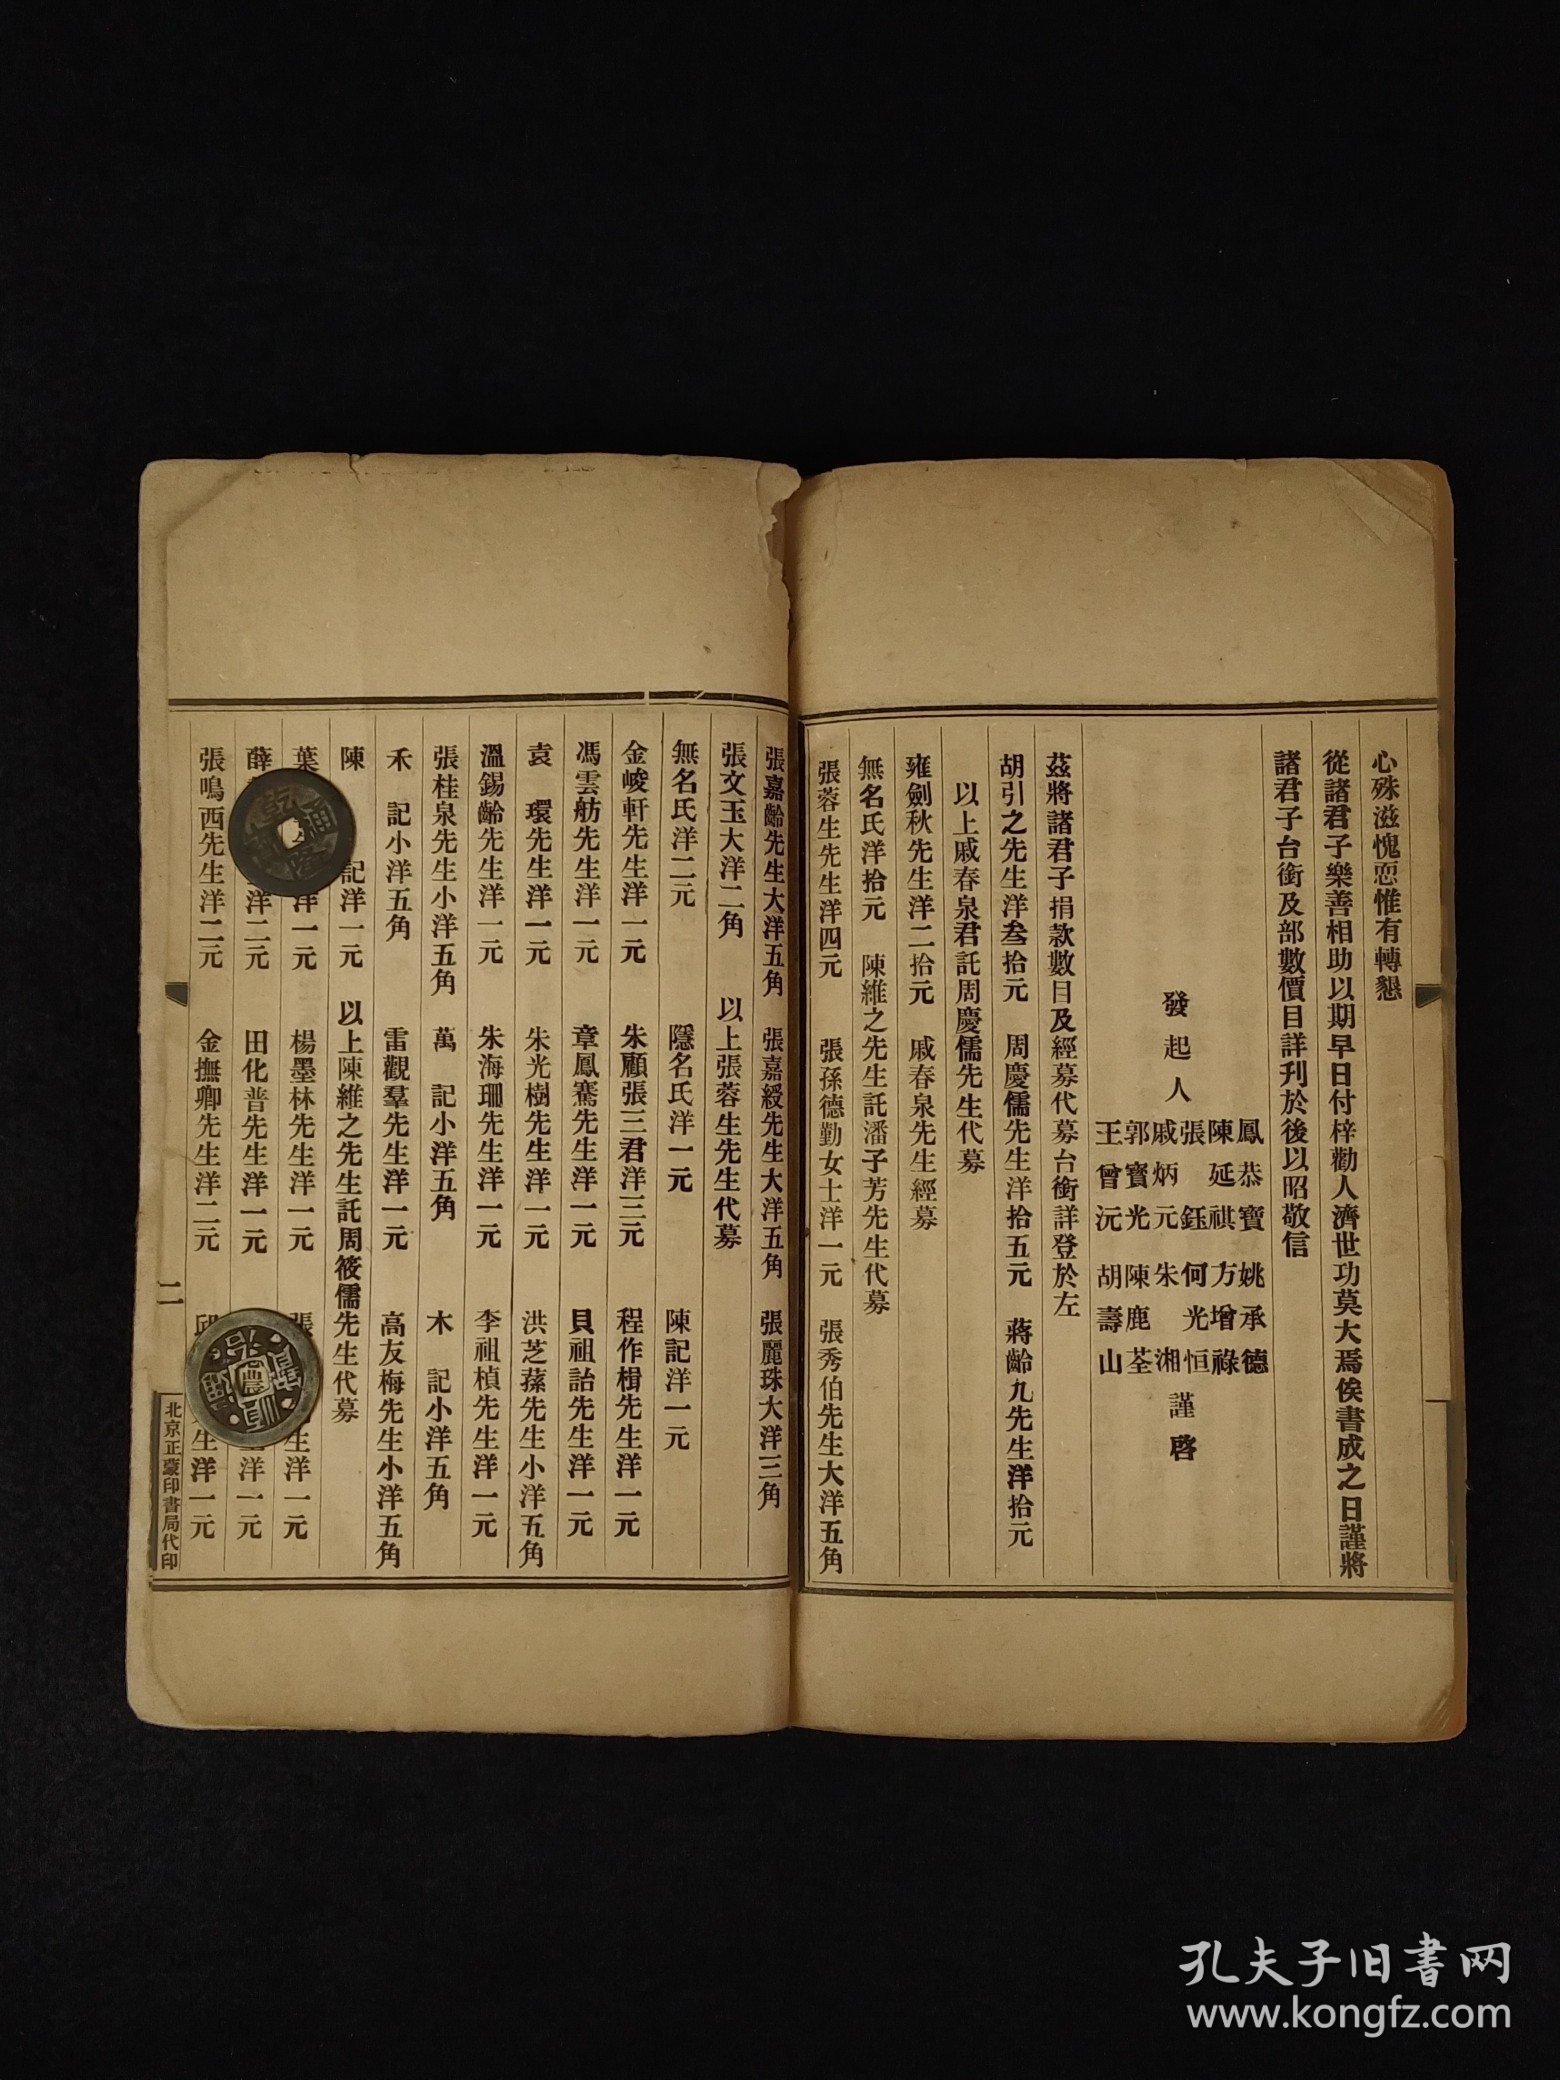 心殊滋愧恧惟有轉懇
從諸君子樂善相助以期早日付梓勸人濟世功莫大焉俟書成之日謹將
諸君子台銜及部數價目詳刋於後以昭敬信
發起人
鳳恭寶 姚承德
陳延祺 方增祿
張鈺 何光恒
戚炳元 朱湘
郭寶光 陳鹿荃
王曾沅 胡壽山
謹啓
茲將諸君子捐款數目及經募代募台銜詳登於左
胡引之先生洋叁拾元 周慶儒先生洋拾五元 蔣齡九先生洋拾元
以上戚春泉君託周慶儒先生代募
雍劍秋先生洋二拾元 戚春泉先生經募
無名氏洋拾元 陳維之先生託潘子芳先生代募
張蓉生先生洋四元 張孫德勤女士洋一元 張秀伯先生大洋五角
張嘉齡先生大洋五角 張嘉綬先生大洋五角 張麗珠大洋三角
張文玉大洋二角 以上張蓉生先生代募
無名氏洋二元 隱名氏洋一元 陳記洋一元
金峻軒先生洋一元 朱顧張三君洋三元 程作楫先生洋一元
馮雲舫先生洋一元 章鳳騫先生洋一元 貝祖詒先生洋一元
袁環先生洋一元 朱光樹先生洋一元 洪芝蓀先生小洋五角
溫錫齡先生洋一元 朱海珊先生洋一元 李祖楨先生洋一元
張桂泉先生小洋五角 萬記小洋五角 木記小洋五角
禾記小洋五角 雷觀羣先生洋一元 高友梅先生小洋五角
陳記洋一元 以上陳維之先生託周筱儒先生代募
葉 洋一元 楊墨林先生洋一元 張 生洋一元
薛 洋二元 田化普先生洋一元 洋一元
張鳴西先生洋二元 金撫卿先生洋二元 邱 生洋一元
二
北京正蒙印書局代印
孔夫子旧书网
www.kongfz.com